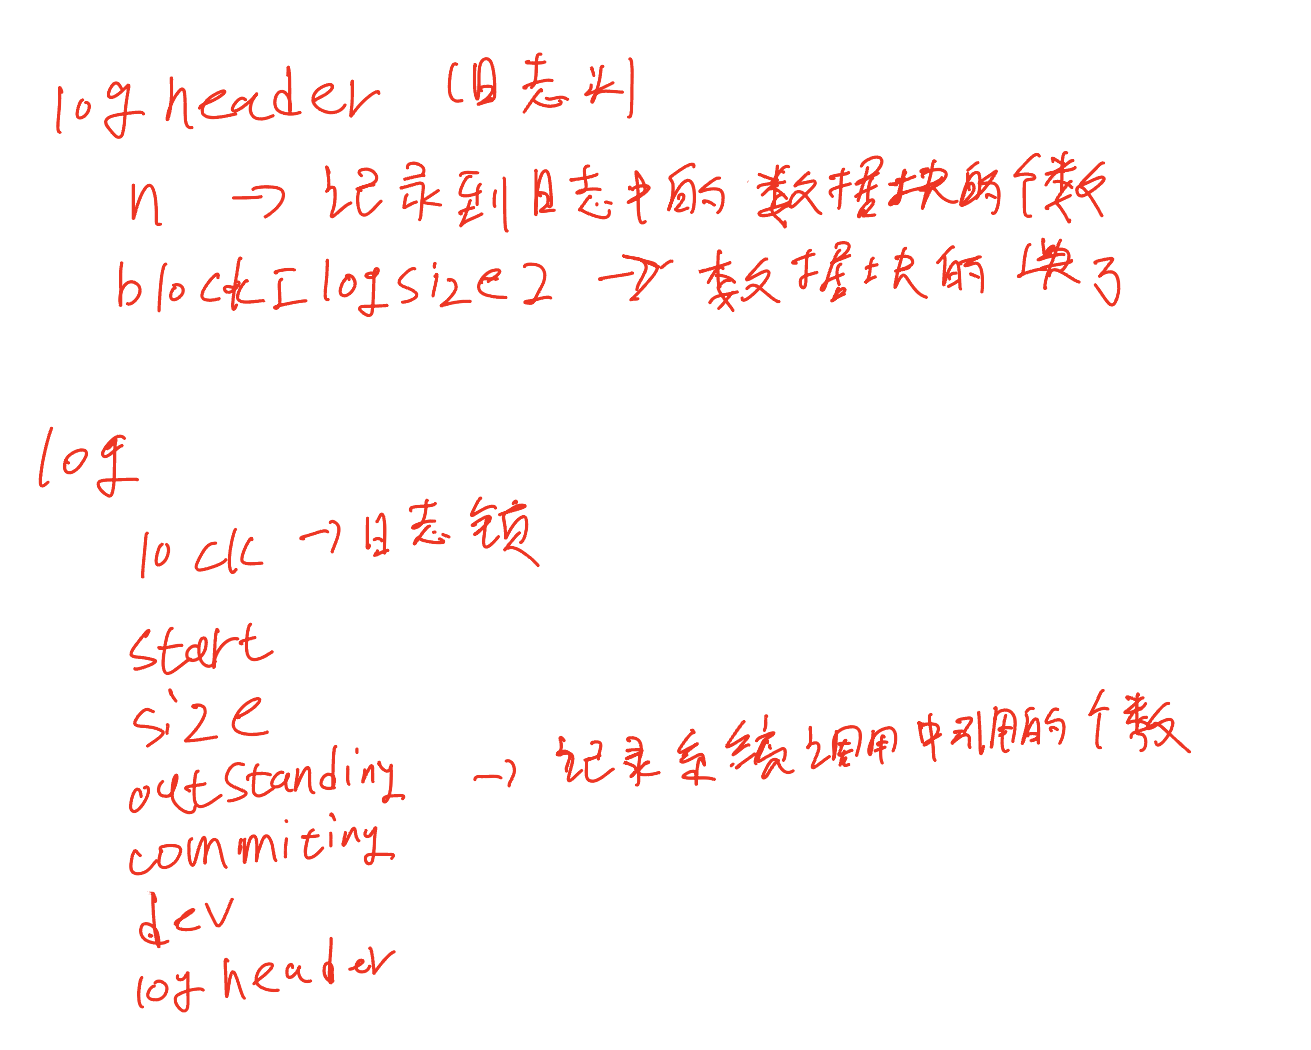 logheader (日志头)
n → 记录到日志中的数据块的个数
block[logsize] → 数据块的
log
lock → 日志锁
start
size
outstanding → 记录系统调用中引用的个数
commiting
dev
logheader